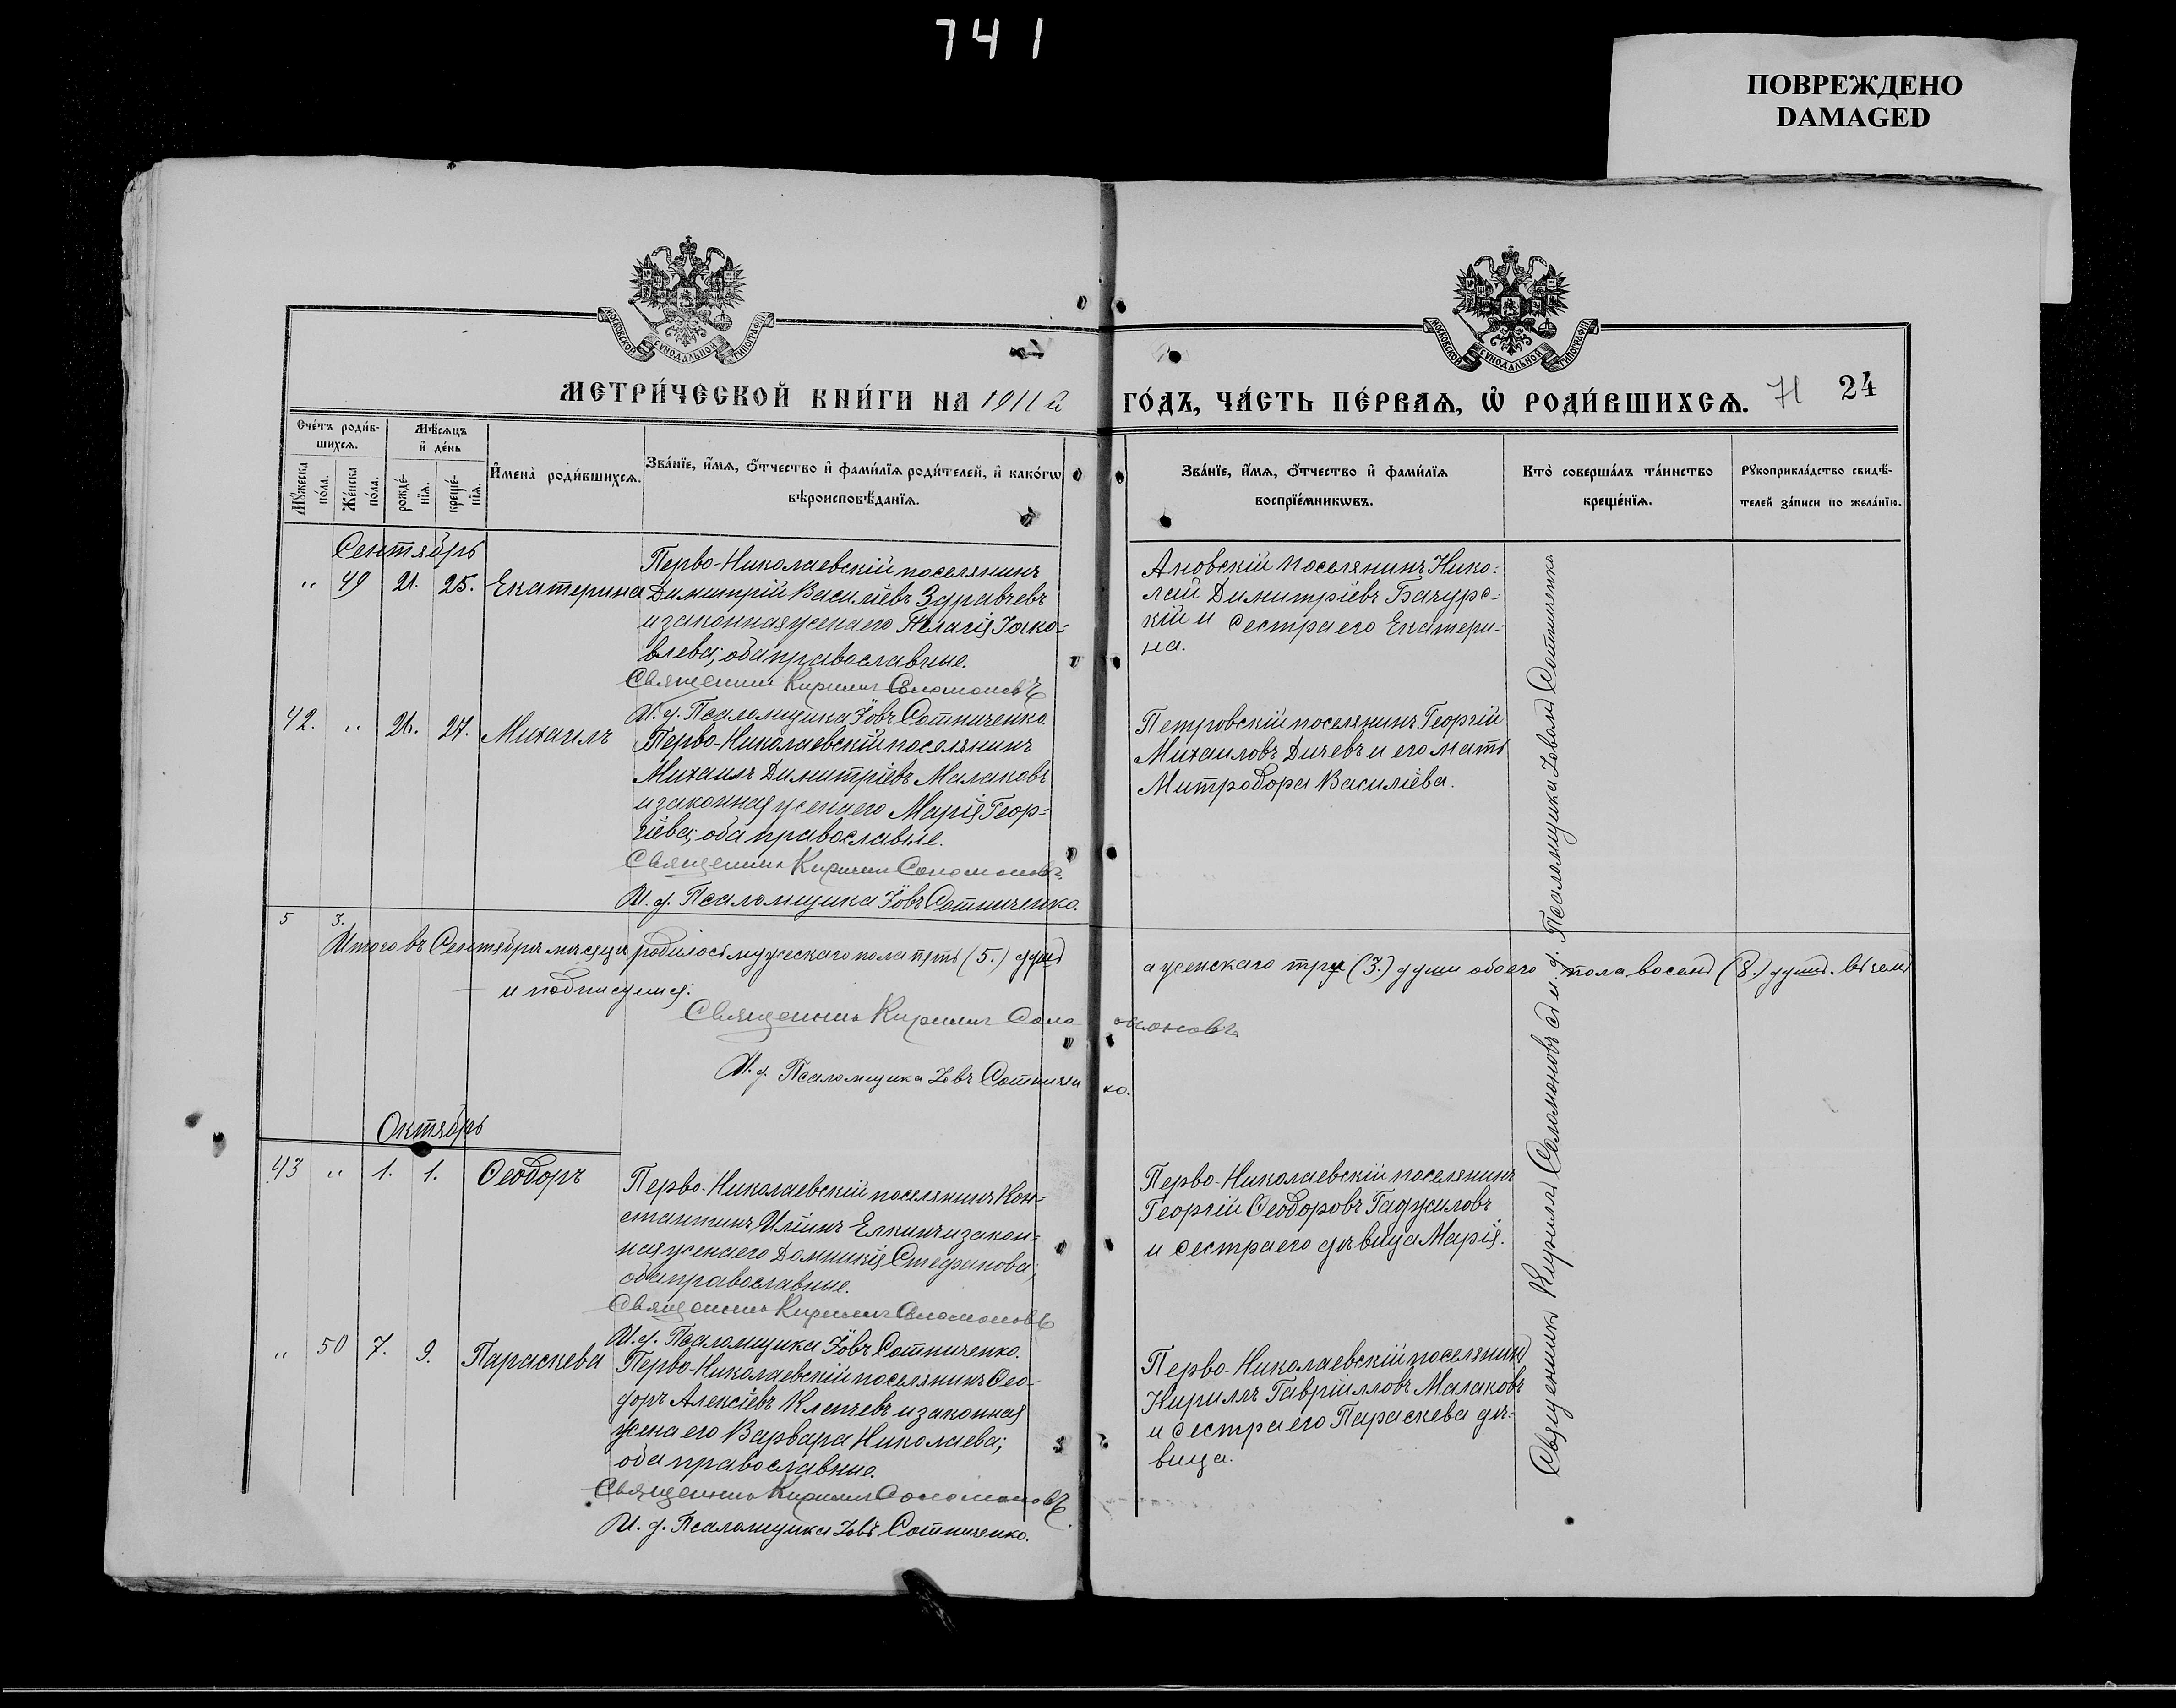 741
ПОВРЕЖДЕНО
DAMAGED
МОСКОВСКОЙ СУНОДАЛЬНОЙ ТИПОГРАФІИ
МОСКОВСКОЙ СУНОДАЛЬНОЙ ТИПОГРАФІИ
МЕТРИ́ЧЕСКОЙ КНИ́ГИ НА 1911 й ГО́ДЪ, ЧА́СТЬ ПЕ́РВАѦ, Ѡ҆ РОДИ́ВШИХСѦ. 71 24
Сче́тъ роди́в-
шихсѧ.
Мꙋ́жеска
по́ла.
Же́нска
по́ла.
Мѣ́сѧцъ
и҆ де́нь
рожде́-
нїѧ.
креще́-
нїѧ.
И҆мена̀ роди́вшихсѧ.
Зва́нїе, и҆́мѧ, ѻ҆́тчество и҆ фами́лїѧ роди́телей, и҆ како́гѡ
вѣроисповѣ́данїѧ.
Зва́нїе, и҆́мѧ, ѻ҆́тчество и҆ фами́лїѧ
воспрїе́мникѡвъ.
Кто̀ соверша́лъ та́инство
креще́нїѧ.
Рꙋкоприкла́дство свидѣ́-
телей за́писи по жела́нїю.
Сентябрь
" 49 21. 25. Екатерина
Перво-Николаевскій поселянинъ
Димитрій Василіевъ Здравчевъ
и законная жена его Пелагія Іако-
влева; оба православные.
Священникъ Кириллъ Соломоновъ
И. д. Псаломщика Іовъ Сотниченко.
поселянинъ Нико-
лай Димитріевъ Бачурс-
кій и сестра его Екатери-
на.
42. " 26. 27. Михаилъ
Перво-Николаевскій поселянинъ
Михаилъ Димитріевъ Малаковъ
и законная жена его Марія Геор-
гіева; оба православые.
Священникъ Кириллъ Соломоновъ
И. д. Псаломщика Іовъ Сотниченко.
Петровскій поселянинъ Георгій
Михаиловъ Дичевъ и его мать
Митродора Василіева.
5 3.
Итого въ Сентябрѣ мѣсяцѣ родилось мужескаго пола пять (5.) душъ
а женскаго три (3.) души обоего пола восемь (8.) душъ. въ чемъ
и подписуемся.
Священникъ Кириллъ Соломоновъ
И. д. Псаломщика Іовъ Сотниченко.
Октябрь
43 " 1. 1. Ѳеодоръ
Перво-Николаевскій поселянинъ Кон-
стантинъ Иліинъ Елкинъ и закон-
ная жена его Домникія Стефанова;
оба православные.
Священникъ Кириллъ Соломоновъ
И. д. Псаломщика Іовъ Сотниченко.
Перво-Николаевскій поселянинъ
Георгій Ѳеодоровъ Гаджиловъ
и сестра его дѣвица Марія.
" 50 7. 9. Параскева
Перво-Николаевскій поселянинъ Ѳео-
доръ Алексіевъ Клепчевъ и законная
жена его Варвара Николаева;
оба православные.
Священникъ Кириллъ Соломоновъ
И. д. Псаломщика Іовъ Сотниченко.
Перво-Николаевскій поселянинъ
Кириллъ Гавріилловъ Малаковъ
и сестра его Параскева дѣ-
вица.
Священникъ Кириллъ Соломоновъ съ и. д. Псаломщика Іовомъ Сотниченко